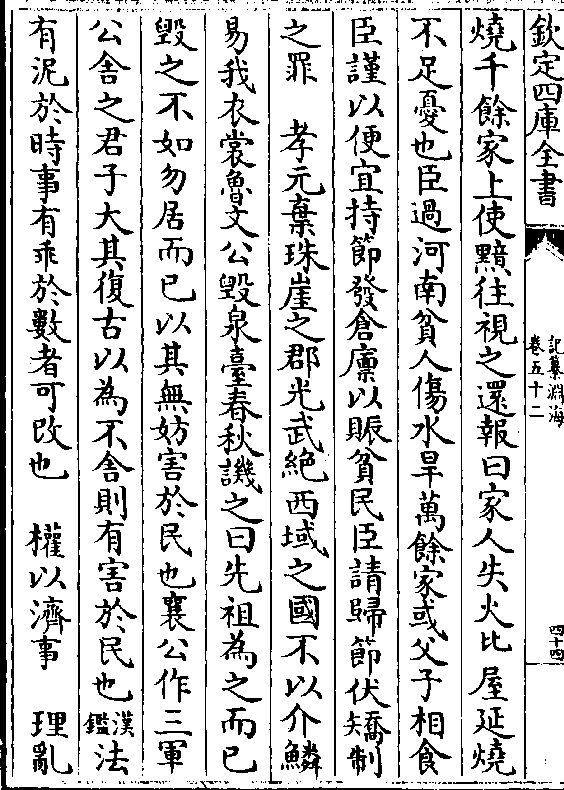 欽定四庫全書
記纂淵海
卷五十二
四十四
燒千餘家上使黯往視之還報曰家人失火比屋延燒
不足憂也臣過河南貧人傷水旱萬餘家或父子相食
臣謹以便宜持節發倉廩以賑貧民臣請歸節伏矯制
之罪 孝元棄珠崖之郡光武絶西域之國不以介鱗
易我衣裳魯文公毀泉臺春秋譏之曰先祖為之而已
毀之不如勿居而已以其無妨害於民也襄公作三軍
公舎之君子大其復古以為不舎則有害於民也漢鑑法
有泥於時事有乖於數者可改也 權以濟事 理亂